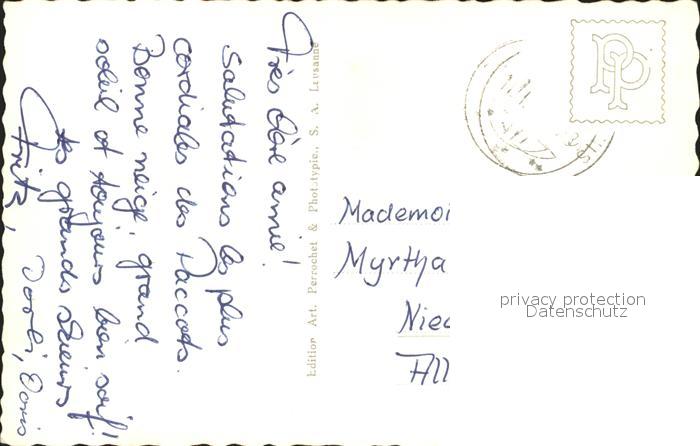 Très chère amie!
Salutations les plus
cordiales des Paccots.
Bonne neige, grand
soleil et toujours bien soif!
les grands skieurs
Fritz, Dorli, Doris
Edition Art. Perrochet & Phototypie., S. A. Lausanne
Mademoi
Myrtha
Nied
All
PP
privacy protection
Datenschutz